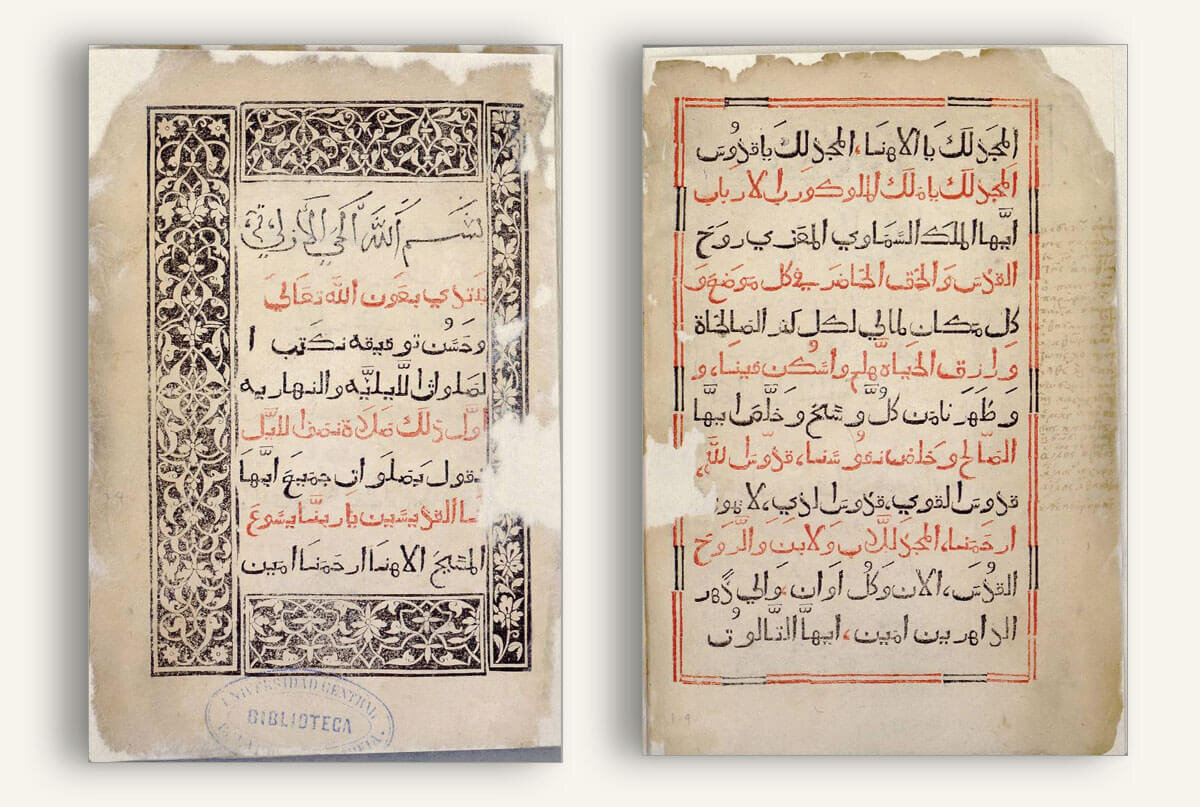 بسم الله الحي الازلي
نبتدي بعون الله تعالي
وحسن توفيقه نكتب ا
لصلواة الليليه والنهاريه
اول ذلك صلاة نصف الليل
نقول بصلوات جميع ايها
القديسين ياربنا يسوع
المسيح الاهنا ارحمنا امين
UNIVERSIDAD CENTRAL
BIBLIOTECA
المجد لك يا الاهنا، المجد لك يا قدوس
المجد لك يا ملك الملوك ورب الارباب
ايها الملك السماوي المعزي روح
القدس والحق الحاضر في كل موضع و
كل مكان لمالي لكل كنز الصالحاة
ورازق الحياه هلم واسكن فينا، و
وطهرنا من كل وسخ وخلص ايها
الصالح وخلص نفوسنا، قدوس الله،
قدوس القوي، قدوس الذي، لا يموت
ارحمنا، المجد للاب ولابن والروح
القدس، الان وكل اوان، والي دهر
الداهرين امين، ايها التالوت